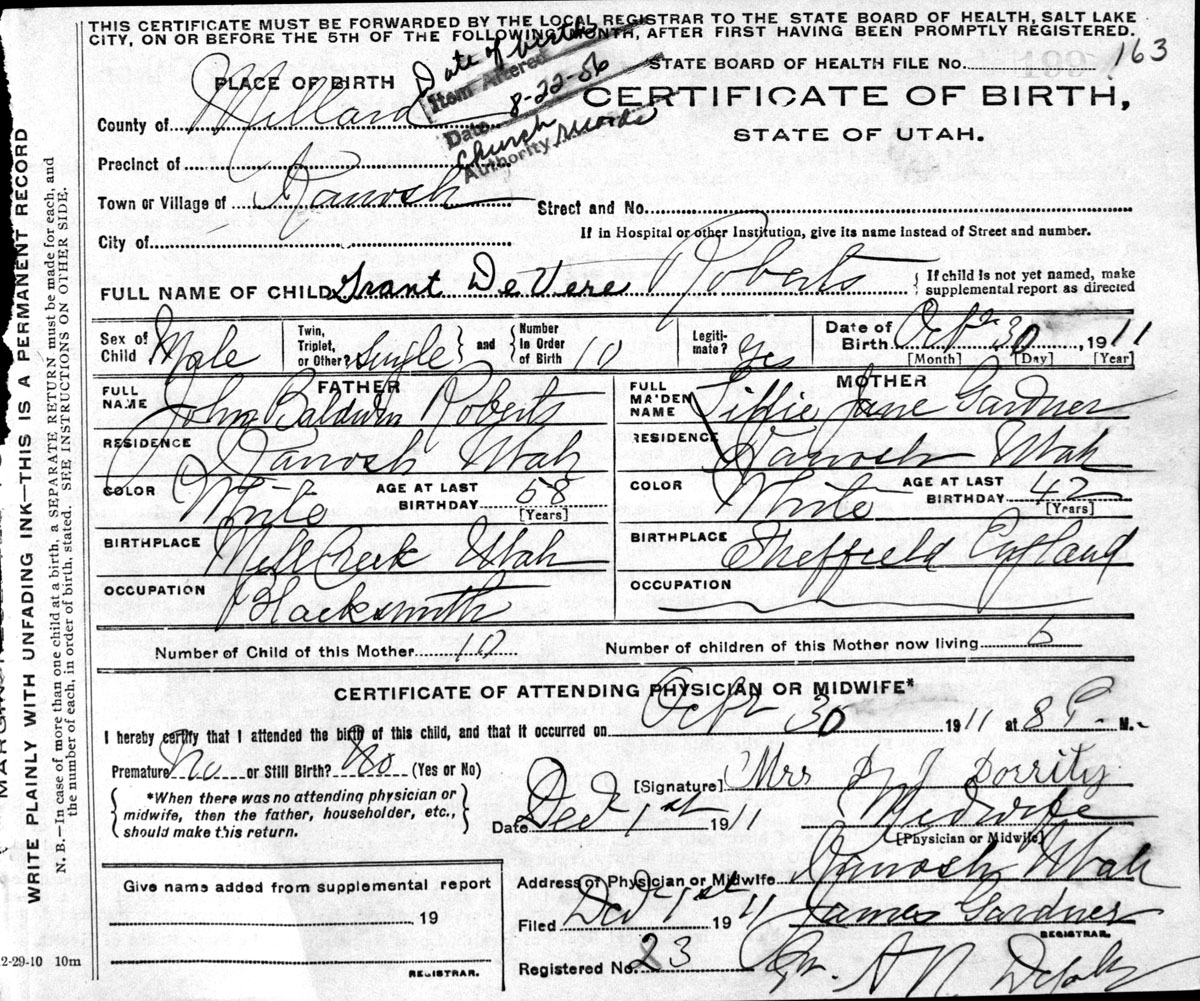 THIS CERTIFICATE MUST BE FORWARDED BY THE LOCAL REGISTRAR TO THE STATE BOARD OF HEALTH, SALT LAKE
CITY, ON OR BEFORE THE 5TH OF THE FOLLOWING MONTH, AFTER FIRST HAVING BEEN PROMPTLY REGISTERED.
STATE BOARD OF HEALTH FILE No. 163
PLACE OF BIRTH
Date of birth
Item Altered
Date 8-22-56
Church records
Authority
CERTIFICATE OF BIRTH,
STATE OF UTAH.
County of Millard
Precinct of
Town or Village of Kanosh
Street and No.
City of
If in Hospital or other Institution, give its name instead of Street and number.
FULL NAME OF CHILD Grant DeVere Roberts { If child is not yet named, make
supplemental report as directed
Sex of Child Male
Twin, Triplet, or Other? Single } and { Number In Order of Birth 10
Legiti-mate? Yes
Date of Birth Oct 30, 1911
[Month] [Day] [Year]
FATHER
FULL NAME John Baldwin Roberts
RESIDENCE Kanosh Utah
COLOR White AGE AT LAST BIRTHDAY 58
[Years]
BIRTHPLACE Mill Creek Utah
OCCUPATION Blacksmith
MOTHER
FULL MAIDEN NAME Jane Gardner
RESIDENCE Kanosh Utah
COLOR White AGE AT LAST BIRTHDAY 42
[Years]
BIRTHPLACE Sheffield England
OCCUPATION
Number of Child of this Mother 10 Number of children of this Mother now living 6
CERTIFICATE OF ATTENDING PHYSICIAN OR MIDWIFE*
I hereby certify that I attended the birth of this child, and that it occurred on Oct 30 1911 at 8 P. M.
Premature No or Still Birth? No (Yes or No)
{ *When there was no attending physician or
midwife, then the father, householder, etc.,
should make this return. }
[Signature] Mrs Dorrity
Date Dec 1st 1911 Midwife
[Physician or Midwife]
Address of Physician or Midwife Kanosh Utah
Filed Dec 1st 1911 James Gardner
REGISTRAR.
Registered No. 23
Give name added from supplemental report
19
REGISTRAR.
2-29-10 10m
WRITE PLAINLY WITH UNFADING INK—THIS IS A PERMANENT RECORD
N. B.—In case of more than one child at a birth, a SEPARATE RETURN must be made for each, and
the number of each, in order of birth, stated. SEE INSTRUCTIONS ON OTHER SIDE.